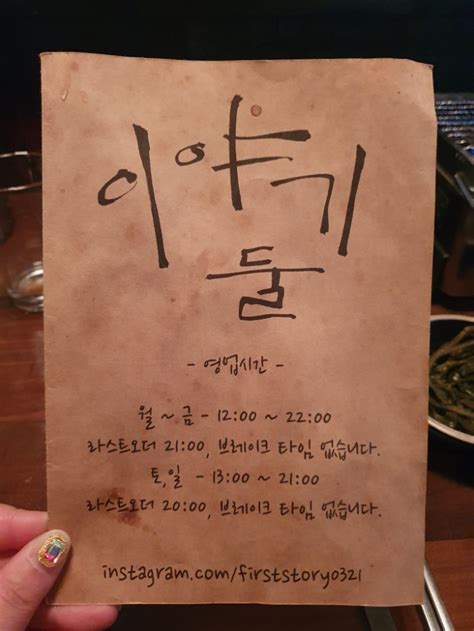 이야기
둘
- 영업시간 -
월 ~ 금 - 12:00 ~ 22:00
라스트오더 21:00, 브레이크 타임 없습니다.
토,일 - 13:00 ~ 21:00
라스트오더 20:00, 브레이크 타임 없습니다.
instagram.com/firststory0321